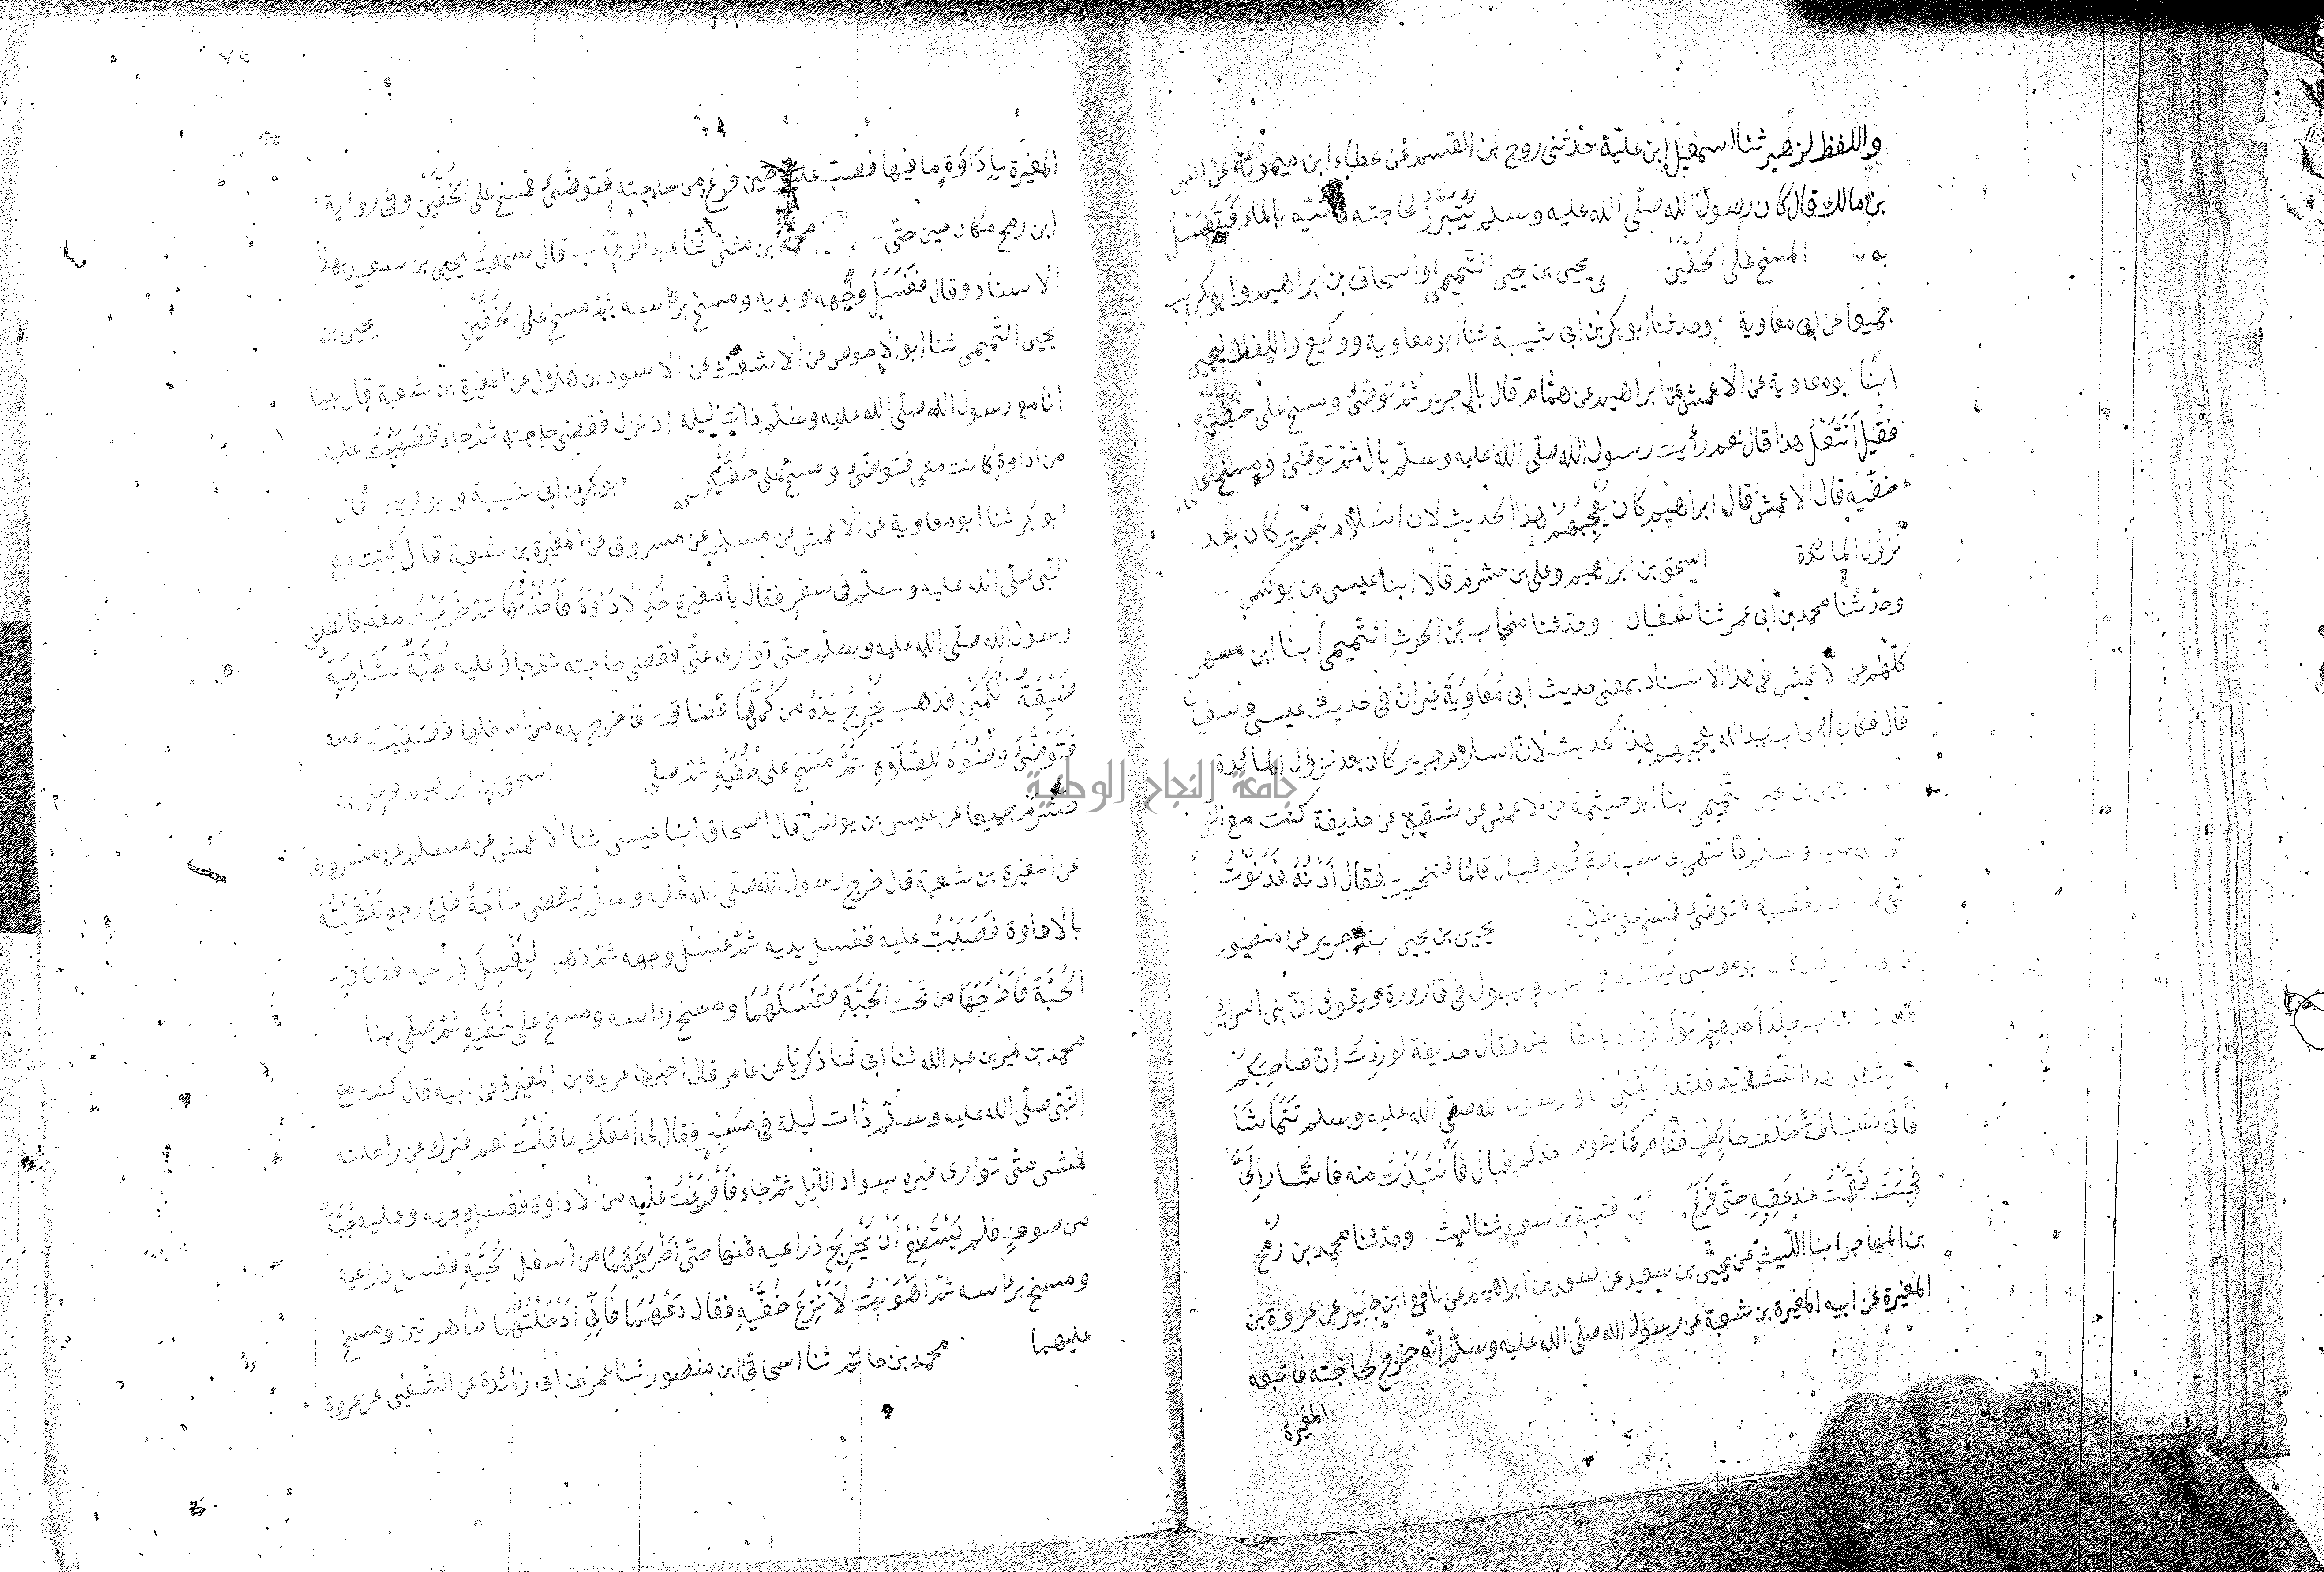 واللفظ لزهير ثنا اسمعيل ابن علية حدثنى روح بن القسم عن عطاء ابن ميمونة عن انس
بن مالك قال كان رسول الله صلى الله عليه وسلم يَتَبَرَّزُ لحاجته فآتيه بالماء فَيَتَغَسَّلُ
به المسح على الخُفَّيْنِ يحيى بن يحيى التميمى واسحاق بن ابراهيم وابو كريب
جميعا عن ابى معاوية وحدثنا ابو بكر بن ابى شيبة ثنا ابو معاوية ووكيع واللفظ ليحيى
ابنا ابو معاوية عن الاعمش عن ابراهيم عن همام قال بال جرير ثم توضئ ومسح على خفيه
فقيل اَتَفْعَلُ هذا قال نعم رأيت رسول الله صلى الله عليه وسلم بال ثم توضئ ومسح على
خفيه قال الاعمش قال ابراهيم كان يُعْجِبُهُمْ هذا الحديث لان اسلام جرير كان بعد
نزول المائدة اسحق بن ابراهيم وعلى بن خشرم قالا ابنا عيسى بن يونس
وحدثنا محمد بن ابى عمر ثنا سفيان وحدثنا منجاب بن الحرث التميمى أبنا ابن مسهر
كلهم عن الاعمش فى هذا الاسناد بمعنى حديث ابى مُعَاوِيَةَ غير ان فى حديث عيسى وسفيان
قال فكان اصحاب عبد الله يعجبهم هذا الحديث لان اسلام جرير كان بعد نزول المائدة
يحيى بن يحيى التميمى ابنا ابو خيثمة عن الاعمش عن شقيق عن حذيفة كنت مع النبى
صلى الله عليه وسلم فانتهى الى سباطة قوم فبال قائما فتنحيت فقال اُدْنُهْ فَدَنَوْتُ
حتى قمت عند عقبيه فتوضئ فمسح على خفيه يحيى بن يحيى ابنا جرير عن منصور
عن ابى وائل قال كان ابو موسى يُشَدِّدُ فى البول ويبول فى قارورة ويقول ان بنى اسرائيل
جِلْدَ اَحَدِهِمْ بَوْلٌ قرضه بالمقاريض فقال حذيفة لوددت ان صاحبكم
لا يشدد هذا التشديد فلقد رَأَيْتُنِى انا ورسول الله صلى الله عليه وسلم نَتَمَاشَا
فاتى سُبَاطَةً خَلْفَ حائط فقام كما يقوم احدكم فبال فانْتَبَذْتُ منه فاشار اِلَىَّ
فَجِئْتُ فَقُمْتُ عند عَقِبِهِ حتى فَرَغَ قتيبة بن سعيد ثنا ليث وحدثنا محمد بن رُمْحِ
بن المهاجر ابنا الليث عن يحيى بن سعيد عن سعد بن ابراهيم عن نافع ابن جبير عن عروة بن
المغيرة عن ابيه المغيرة بن شعبة عن رسول الله صلى الله عليه وسلم انه خرج لحاجته فاتبعه
المغيرة
المغيرة بِاِدَاوَةٍ ما فيها فصب عليه حين فرغ من حاجته فتوضئ فمسح على الخُفَّيْنِ وفى رواية
ابن رمح مكان حين حتى محمد بن مثنى ثنا عبد الوهاب قال سمعت يحيى بن سعيد بهذا
الاسناد وقال فَغَسَلَ وجهه ويديه ومسح برأسه ثم مسح على الخُفَّيْنِ يحيى بن
يحيى التميمى ثنا ابو الاحوص عن الاشعث عن الاسود بن هلال عن المغيرة بن شعبة قال بينا
انا مع رسول الله صلى الله عليه وسلم ذات ليلة اذ نزل فقضى حاجته ثم جاء فَصَبَبْتُ عليه
من اداوة كانت معى فتوضئ ومسح على خُفَّيْهِ ابو بكر بن ابى شيبة وابو كريب قال
ابو بكر ثنا ابو معاوية عن الاعمش عن مسلم عن مسروق عن المغيرة بن شعبة قال كنت مع
النبى صلى الله عليه وسلم فى سفر فقال يا مغيرة خُذِ الاِدَاوَةَ فَاَخَذْتُهَا ثم خَرَجْتُ معه فانطلق
رسول الله صلى الله عليه وسلم حتى توارى عنى فقضى حاجته ثم جاؤ عليه جُبَّةٌ شَامِيَةٌ
ضَيِّقَةُ الكُمَّيْنِ فذهب يُخْرِجُ يَدَهُ من كُمِّهَا فضاقت فاخرج يده من اسفلها فَصَبَبْتُ عليه
فَتَوَضَّئَ وُضُوْءَهُ لِلصَّلَاوةِ ثُمَّ مَسَحَ على خُفَّيْهِ ثم صلى اسحق بن ابراهيم وعلى بن
خشرم جميعا عن عيسى بن يونس قال اسحاق ابنا عيسى ثنا الاعمش عن مسلم عن مسروق
عن المغيرة بن شعبة قال خرج رسول الله صلى الله عليه وسلم ليقضى حَاجَةً فلما رجع تَلَقَّيْتُهُ
بالاداوة فَصَبَبْتُ عليه فغسل يديه ثم غسل وجهه ثم ذهب لِيَغْسِلَ ذراعيه فضاقت
الجُبَّةُ فَاَخْرَجَهَا من تَحْت الجُبَّةِ فَغَسَلَهُمَا ومسح رأسه ومسح على خُفَّيْهِ ثم صلى بنا
محمد بن نمير بن عبد الله ثنا ابى ثنا ذكريا عن عامر قال اخبرنى عروة بن المغيرة عن ابيه قال كنت مع
النبى صلى الله عليه وسلم ذات ليلة فى مَسِيْرٍ فقال لى اَمَعَكَ ما قُلْتُ نعم فنزل عن راحلته
فمشى حتى توارى فيره سواد الليل ثم جاء فَاَفْرَغْتُ عليه من الاداوة فغسل وجهه وعليه جُبَّةٌ
من صوف فلم يَسْتَطِعْ اَنْ يُخْرِجَ ذراعيه منها حتى اَخْرَجَهُمَا من اسفل الجُبَّةِ فغسل ذراعيه
ومسح برأسه ثم اَهْوَيْتُ لاَنْزِعَ خُفَّيْهِ فقال دَعْهُمَا فَاِنِّى اَدْخَلْتُهُمَا طاهرتين ومسح
عليهما محمد بن حاتم ثنا اسحاق ابن منصور ثنا عمر بن ابى زائدة عن الشعبى عن عروة
جامعة النجاح الوطنية